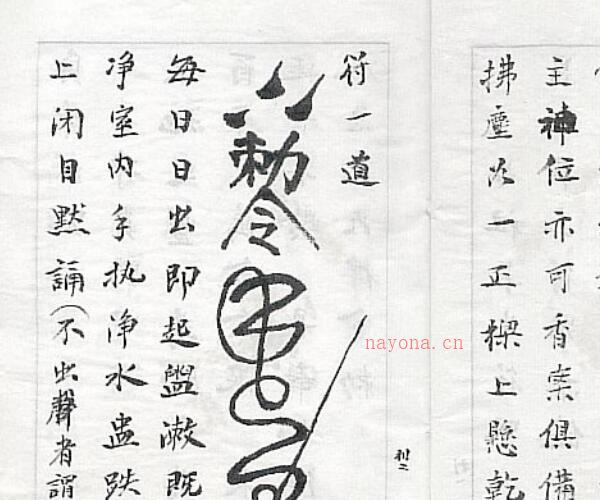 主神位亦可香案俱備
拂塵以一正樑上懸乾
符一道
敕令
每日日出即起盥漱既
净室內手执净水盅趺
上闭目默誦（不出聲者謂
nayona.cn